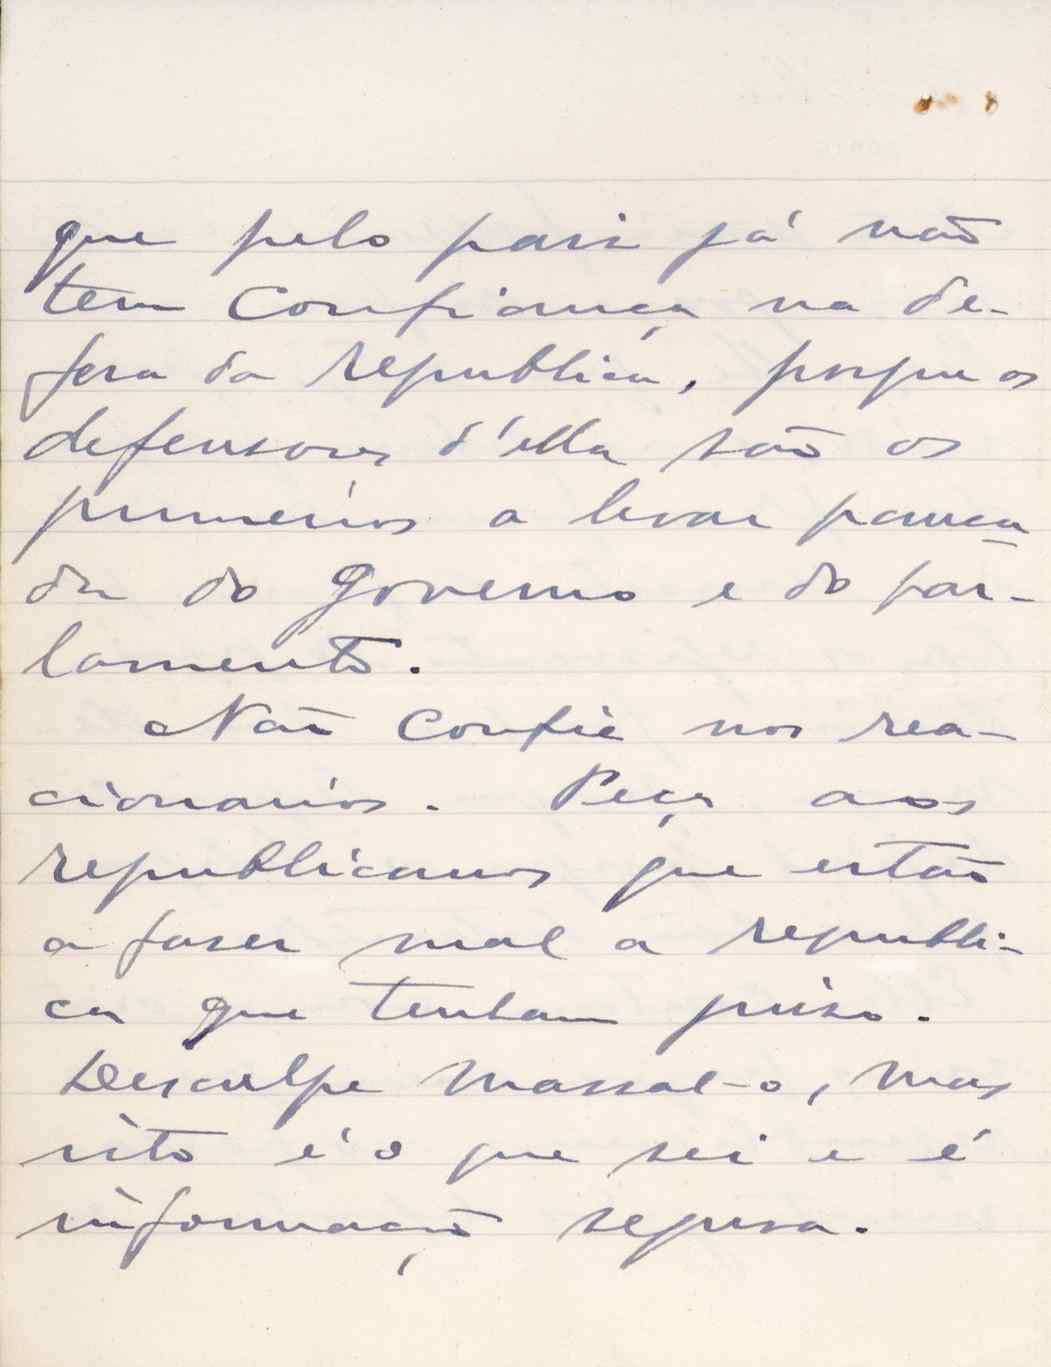 que pelo pais já não
tem confiança na de-
fesa da republica, porque os
defensores d'ella são os
primeiros a levar panca
da do governo e do par-
lamento.
Não confie nos rea-
cionarios. Peça aos
republicanos que estão
a faser mal a republi-
ca que tenham juiso.
Desculpe massal-o, mas
isto é o que sei e é
informação segura.